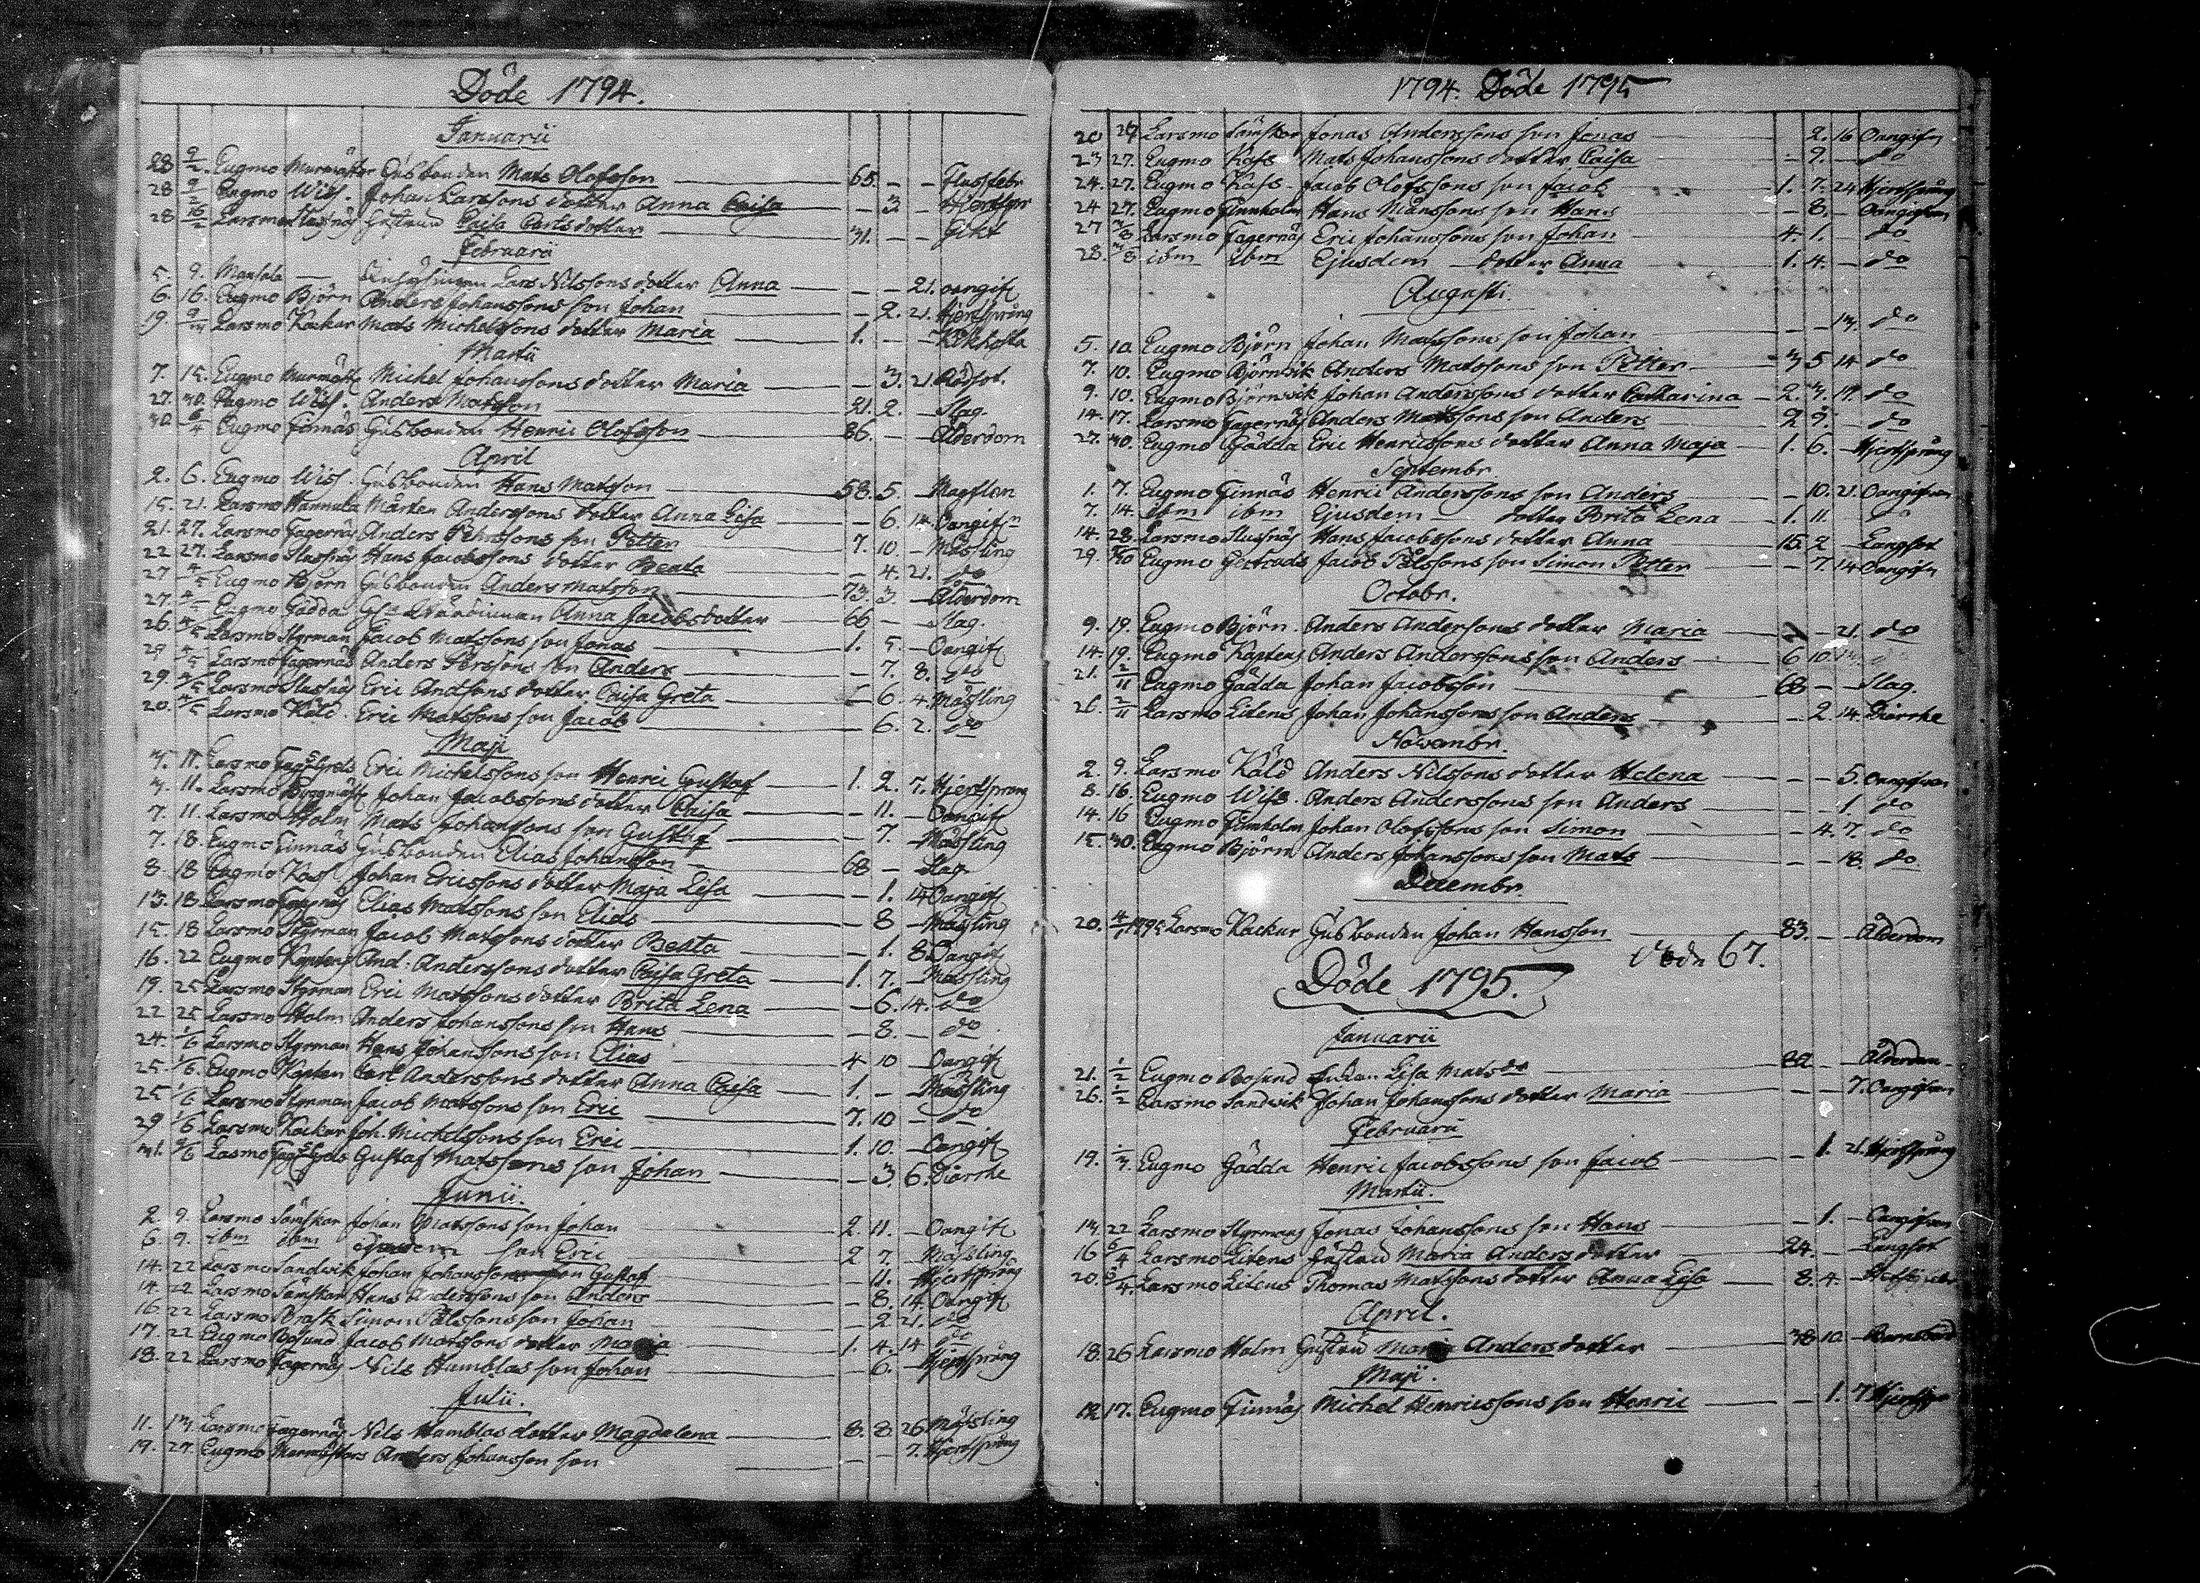 Döde 1794.
Januarii
28 9/2. Eugmo Murmäster Husbonden Mats Olofsson 65. - - Flussfebr
28 9/2 Eugmo Wisl. Johan Larssons dotter Anna Caisa - 3 - Hjertspr
28 16/2 Larsmo Slusnäs Hustrun Caisa Carlsdotter 31. - - Gikt
Februarii
5. 9. Mansala Lars Nilssons dotter Anna - - 21. oangift
6. 16. Eugmo Björn Anders Johanssons son Johan - 2. 21. Hjertsprång
19. 9/3 Larsmo Kackur Mats Michelssons dotter Maria 1. - - Kikhosta
Martii
7. 15. Eugmo Murmäst Michel Johanssons dotter Maria - 3. 21 Rödsot.
27. 30. Eugmo Wisl. Anders Matsson 21. 2. - Slag.
30. 6/4 Eugmo Finnäs Husbonden Henric Olofsson 86. - - Ålderdom
April
2. 6. Eugmo Wisl. Husbonden Hans Matsson 58. 5. - Magplån
15. 21. Larsmo Hannula Mårten Anderssons dotter Anna Lisa - 6. 14. Oangifn
21. 27. Larsmo Fagernäs Anders Pehrssons son Petter 7. 10. - Mässling
22. 27. Larsmo Slusnäs Hans Jacobssons dotter Beata - 4. 21. do
27 4/5 Eugmo Björn Husbonden Anders Matsson 73. 3. - Ålderdom
27. 4/5 Eugmo Gädda Anna Jacobsdotter 66 - - Slag.
26. 4/5 Larsmo Styrman Jacob Matssons son Jonas 1. 5. - Oangift
29 4/5 Larsmo Fagernäs Anders Perssons son Anders - 7. 8. do
29. 4/5 Larsmo Slusnäs Eric Andssons dotter Caisa Greta - 6. 4. Mässling
20. 4/5 Larsmo Käld. Eric Matssons son Jacob 6. 2. do
Maji
3. 11. Larsmo Eric Michelssons son Henric Gustaf 1. 2. 7. Hjertsprång
3. 11. Larsmo Johan Jacobssons dotter Caisa - 11. - Oangift
7. 11. Larsmo Holm Mats Johanssons son Gustaf - 7. - Mässling
7. 18. Eugmo Finnäs Husbonden Elias Johansson 68 - - Slag
8. 18 Eugmo Kass Johan Ericssons dotter Maja Lisa - 1. 14 Oangift
13. 18 Larsmo Fagernäs Elias Matssons son Elias - 8 - Mässling
15. 18 Larsmo Styrman Jacob Matssons dotter Beata - 1. 8. Oangift
16. 22 Eugmo Kaptens And: Anderssons dotter Caisa Greta 1. 7. - Mässling
19. 25 Larsmo Styrman Eric Matssons dotter Brita Lena - 6. 14. do
22 25 Larsmo Holm Anders Johanssons son Hans - 8. - do
24. 1/6 Larsmo Styrman Hans Johanssons son Elias 4 10 - Oangift
25. 1/6. Eugmo Kapten Carl Anderssons dotter Anna Caisa 1. - - Mässling
25 1/6 Larsmo Styrman Jacob Matssons son Eric 7. 10 - do
29 1/6 Larsmo Kackur Joh. Michelssons son Eric 1. 10. - Oangift
31. 9/6 Lasmo Gustaf Matssons son Johan - 3. 6. Diarrhe
Junii.
2. 9. Larsmo Sämskar Johan Matssons son Johan 2. 11. - Oangift
6. 9. ibm ibm ejusdem son Eric 2 7. - Mässling
14. 22 Larsmo Sandwik Johan Johanssons son Gustaf - 11. - Hjertsprång
14. 22 Larsmo Sämskar Hans Anderssons son Anders - 8. 14. Oangift
16. 22 Larsmo Brask Simon Pålssons son Johan - 2 21. do
17. 22 Eugmo Bosund Jacob Matssons dotter Maria 1. 4. 14 do
18. 22 Larsmo Fagernäs Nils Humblas son Johan - 6. - Hjertsprång
Julii.
11. 13. Larsmo Fagernäs Nils Humblas dotter Magdalena 8. 8. 26. Mässling
19. 27. Eugmo Murmästars Anders Johansson son - - 7. Hjertsprång
1794. Döde 1795
20 27 Larsmo Sämskar Jonas Anderssons son Jonas 2. 16 Oangifn
23 27. Eugmo Kass Mats Johanssons dotter Caisa - 9. - do
24. 27. Eugmo Kass - Jacob Olofssons son Jacob 1. 7. 24 Hjertsprång
24 27. Eugmo Finnholm Hans Månssons son Hans - 8. - Oangifven
27 3/8 Larsmo Fagernäs Eric Johanssons son Johan 4. 1. - do
28. 3/8 ibm ibm Ejusdem dotter Anna 1. 4. - do
Augusti.
5. 10. Eugmo Björn Johan Matssons son Johan - - 13. do
7. 10. Eugmo Björnwik Anders Matssons son Petter 3 5 14 do
9. 10. Eugmo Björnwik Johan Anderssons dotter Catharina 2. 3. 17. do
14. 17. Larsmo Fagernäs Anders Matssons son Anders 2 9. - do
27. 30. Eugmo Gädda Eric Henricssons dotter Anna Maja 1. 6. - Hjertsprång
Septembr
1. 7. Eugmo Finnäs Henric Anderssons son Anders - 10. 21. Oangifven
7. 14 ibm ibm Ejusdem dotter Brita Lena 1. 11. - do
14. 28. Larsmo Slusnäs Hans Jacobssons dotter Anna 15. 2 - Langsot
29. 5/10 Eugmo Gertruds Jacob Pålssons son Simon Petter - 7. 14 Oangifn
Octobr.
9. 19. Eugmo Björn. Anders Anderssons dotter Maria - 21. do
14. 19. Eugmo Kaptens Anders Anderssons son Anders 6 10.
21. 2/11 Eugmo Gädda Johan Jacobsson 68 - - Slag.
26. 2/11 Larsmo Litens Johan Johanssons son Anders - 2. 14. Diarrhe
Novembr.
2. 9. Larsmo Käld Anders Nilssons dotter Helena - - 5. Oangifven
8. 16. Eugmo Wisl. Anders Anderssons son Anders - - 1. do
14. 16 Eugmo Finnholm Johan Olofssons son Simon - 4. 7. do
15. 30. Eugmo Björn Anders Johanssons son Mats - - 18. do
Decembr.
20. 4/1 1795 Larsmo Kackur Husbonden Johan Hansson 83. - - Ålderdom
döde 67.
Döde 1795.
Januarii
21. 1/2 Eugmo Bosund Enkan Lisa Matsdr 82 - - Ålderdom
26. 1/2 Larsmo Sandwik Johan Johanssons dotter Maria - - 7. Oangifven
Februarii
19. 1/3 Eugmo Gädda Henric Jacobssons son Jacob - 1. 21. Hjertsprång
Martii.
13. 22 Larsmo Styrmans Jonas Johanssons son Hans - 1. - Oangifven
16 5/4 Larsmo Litens Hustrun Maria Andersdotter 24. - - Langsot
20. 5/4. Larsmo Litens Thomas Matssons dotter Anna Lisa 8. 4. -
April.
18 26 Larsmo Holm Hustrun Maria Andersdotter 38 10. - Barnsbörd
Maji.
12. 17. Eugmo Finnäs Michel Henricssons son Henric - 1. 7 Hjertspr